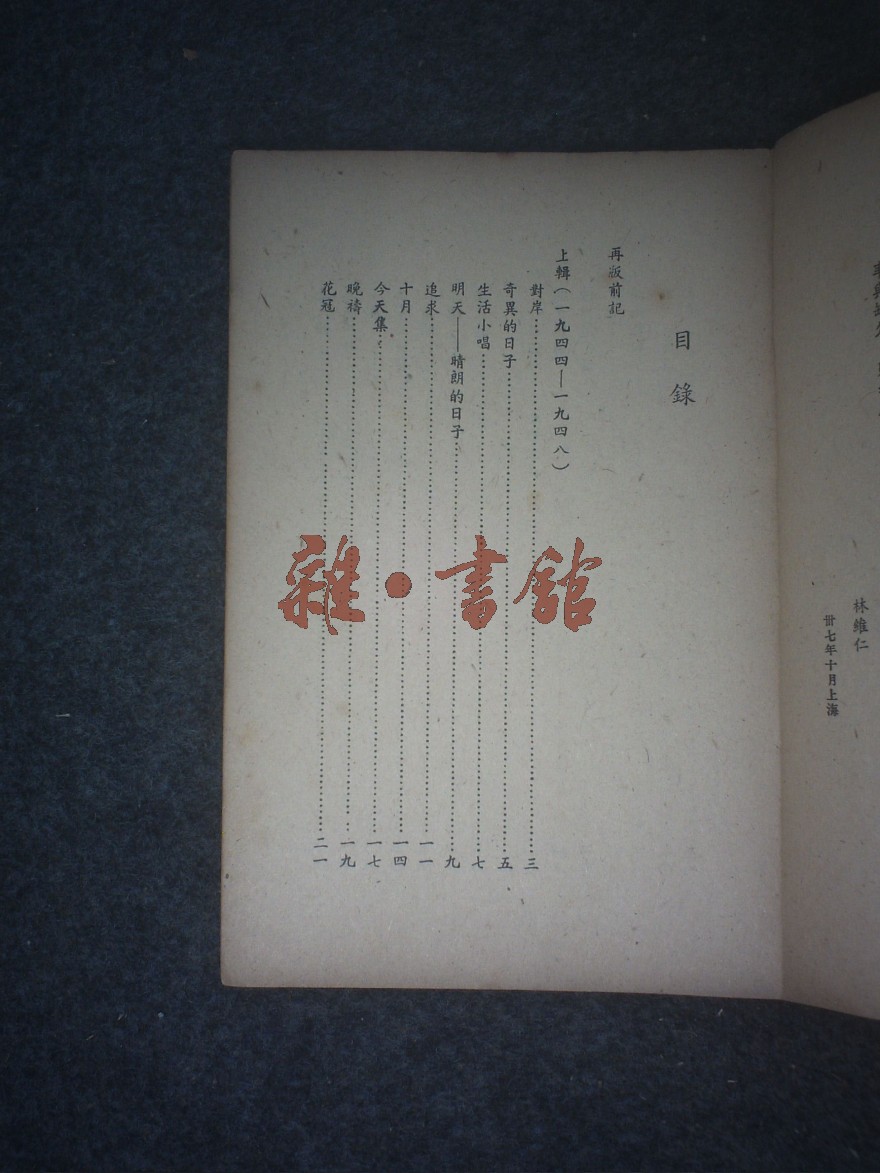 林維仁
卅七年十月上海
目錄
再版前記
上輯(一九四四—一九四八)
對岸……三
奇異的日子……五
生活小唱……七
明天——晴朗的日子……九
追求……一一
十月……一四
今天集……一七
晚禱……一九
花冠……二一
雜·書館